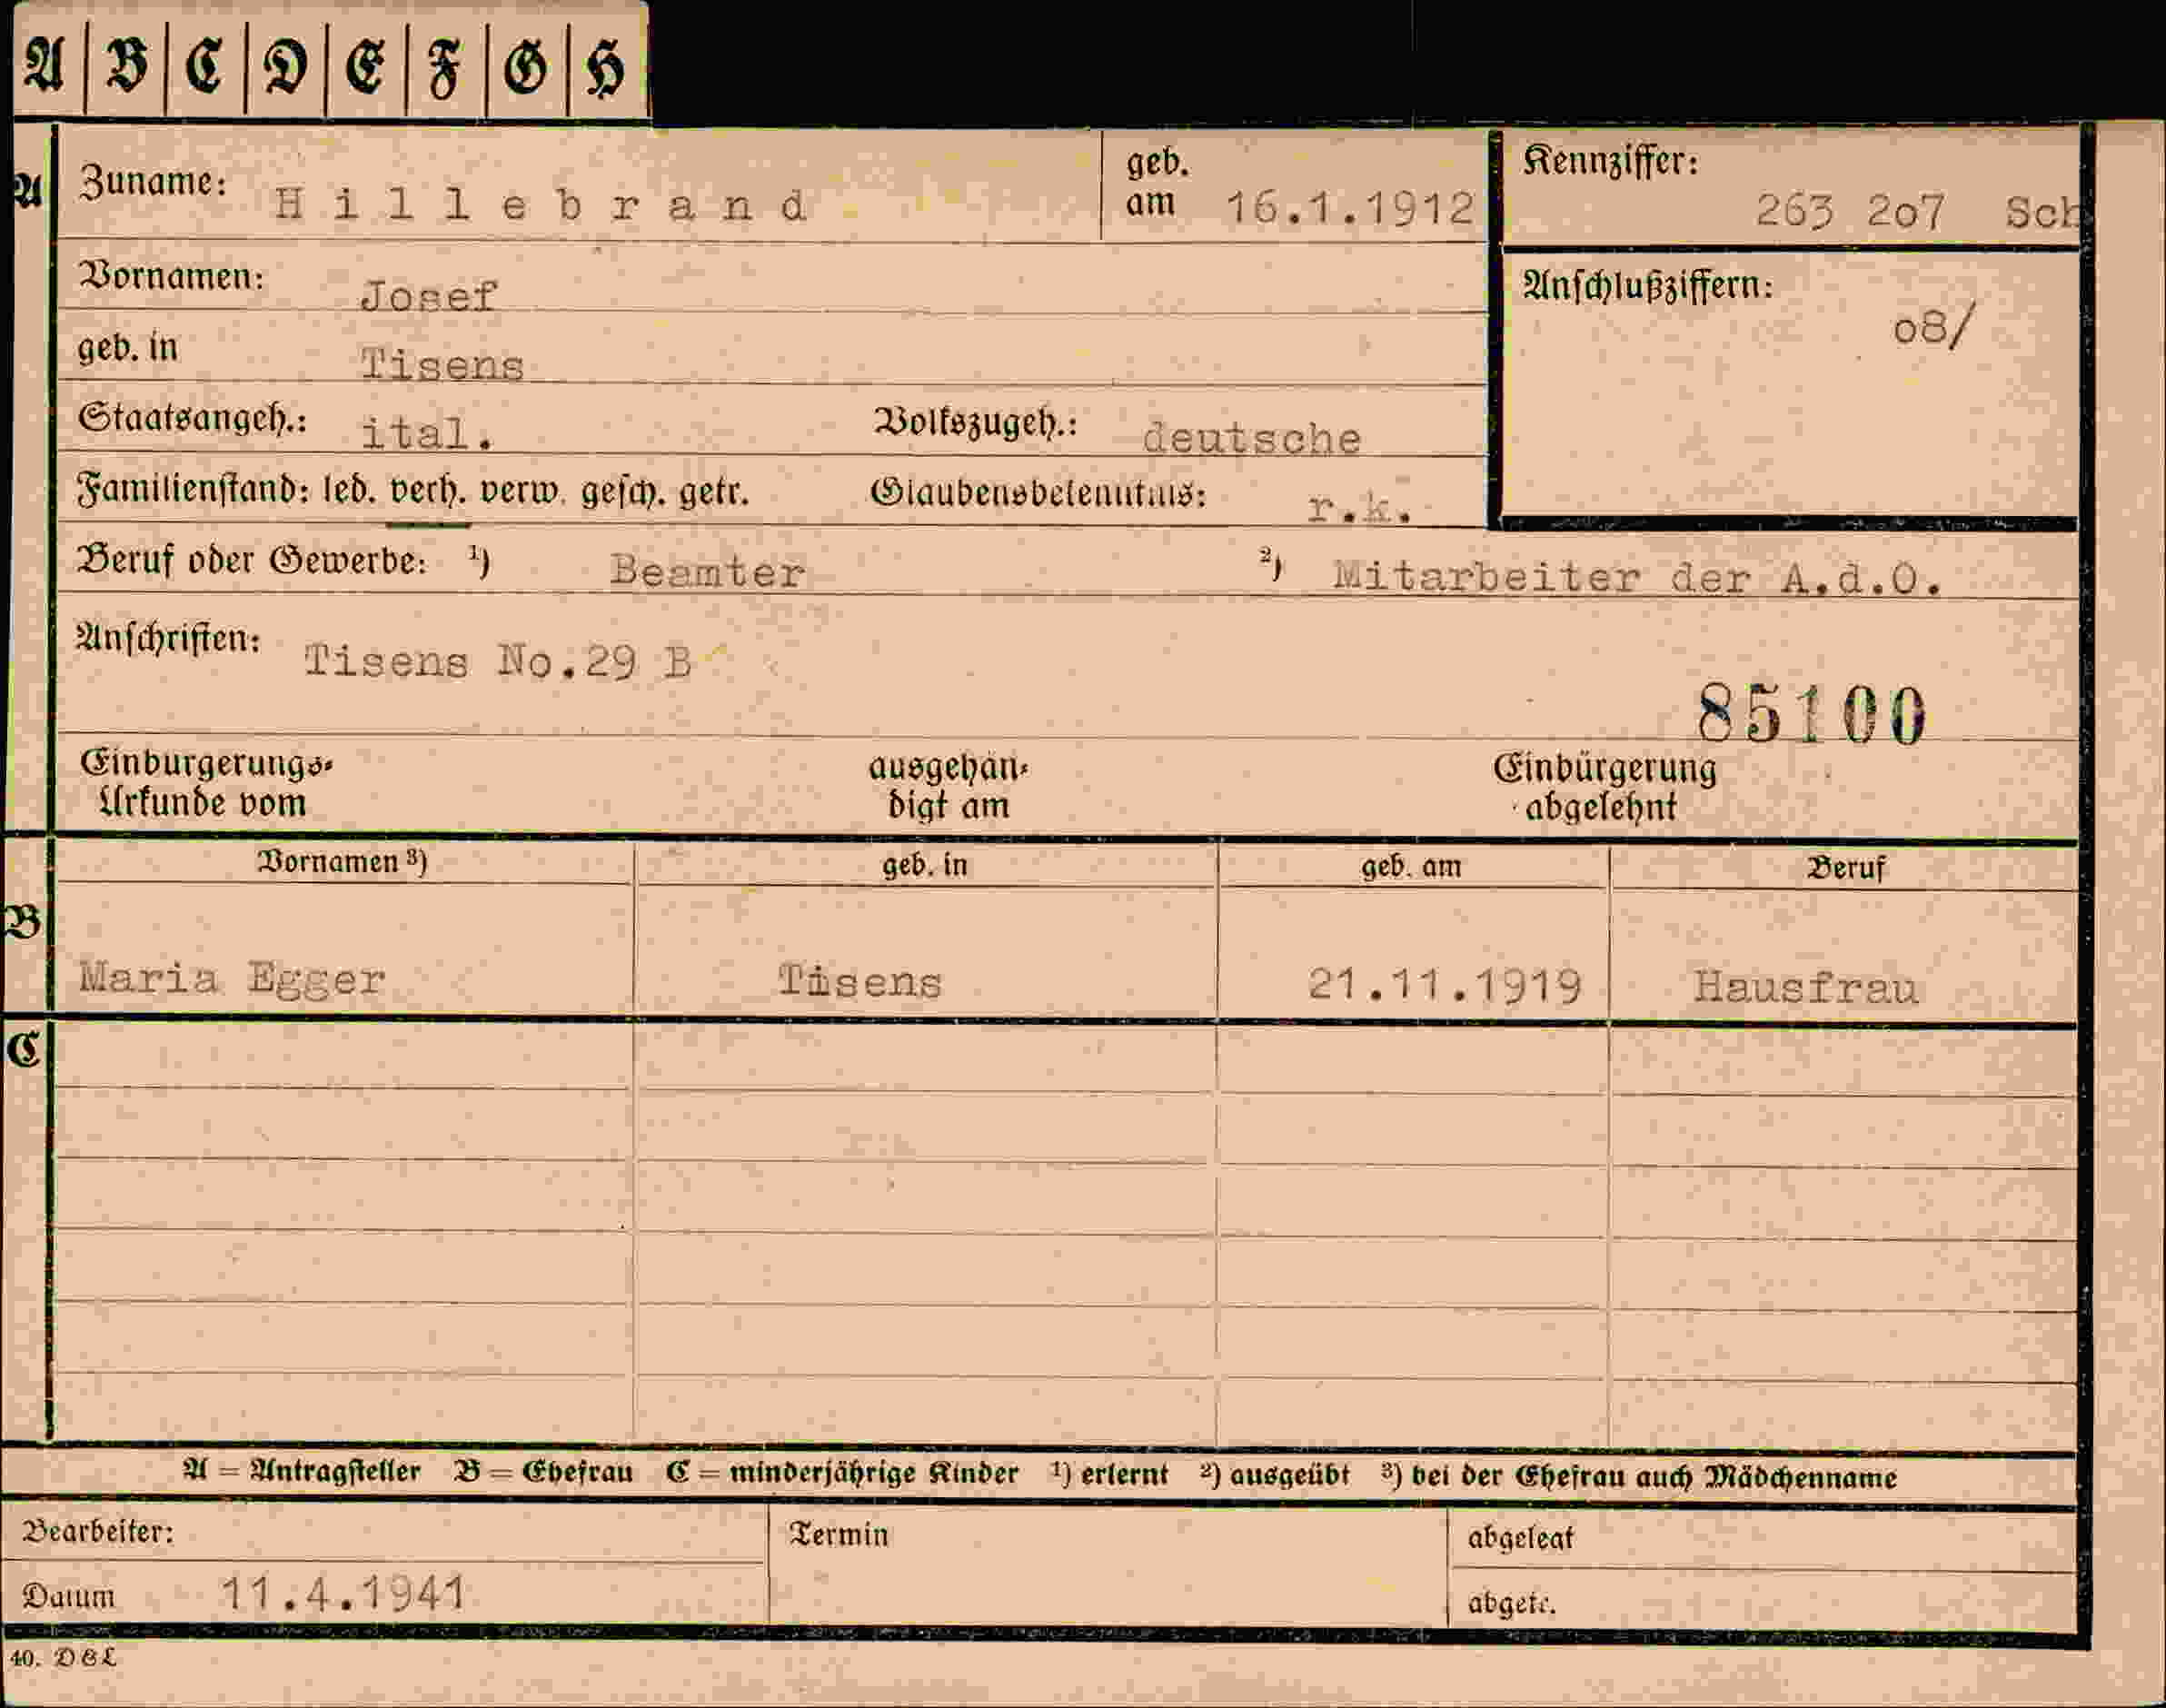 A | B | C | D | E | F | G | H
A Zuname: Hillebrand geb. am 16.1.1912 Kennziffer: 263 2o7 Sch
Vornamen: Josef Anschlußziffern: o8/
geb. in Tisens
Staatsangeh.: ital. Volkszugeh.: deutsche
Familienstand: led. verh. verw. gesch. getr. Glaubensbekenntnis: r.k.
Beruf oder Gewerbe: ¹) Beamter ²) Mitarbeiter der A.d.O.
Anschriften: Tisens No.29 B
85100
Einbürgerungs- ausgehän- Einbürgerung
Urkunde vom digt am abgelehnt
Vornamen ³) geb. in geb. am Beruf
B
Maria Egger Tisens 21.11.1919 Hausfrau
C
A = Antragsteller B = Ehefrau C = minderjährige Kinder ¹) erlernt ²) ausgeübt ³) bei der Ehefrau auch Mädchenname
Bearbeiter: Termin abgelegt
Datum 11.4.1941 abgetr.
40.